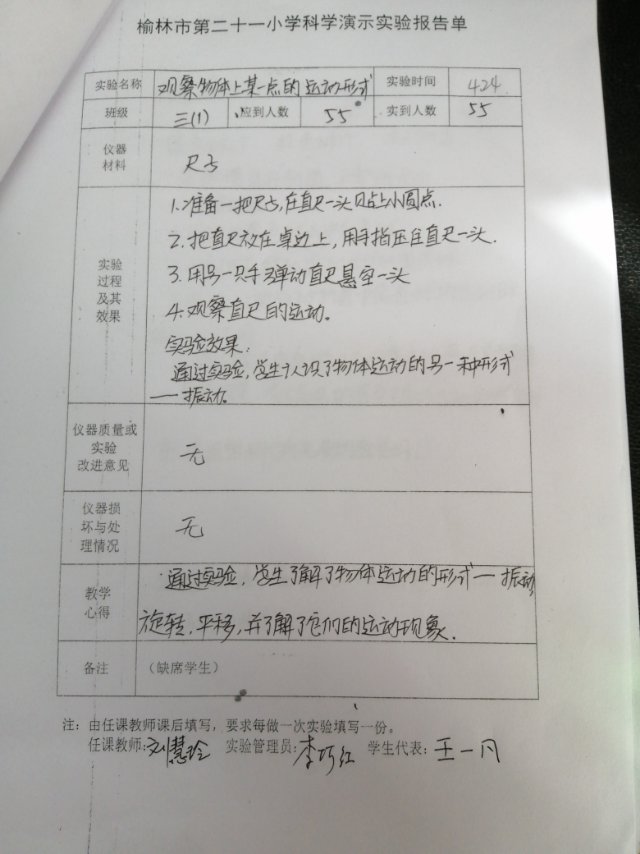 榆林市第二十一小学科学演示实验报告单
实验名称 观察物体上某一点的运动形式 实验时间 4.24
班级 三(1) 应到人数 55 实到人数 55
仪器
材料
尺子
实验
过程
及其
效果
1.准备一把尺子,在直尺一头贴上小圆点.
2.把直尺放在桌边上,用手指压住直尺一头.
3.用另一只手弹动直尺悬空一头
4.观察直尺的运动。
实验效果:
通过实验,学生认识了物体运动的另一种形式
——振动。
仪器质量或
实验
改进意见
无
仪器损
坏与处
理情况
无
教学
心得
通过实验,学生了解了物体运动的形式——振动
旋转,平移,并了解了它们的运动现象.
备注 (缺席学生)
注:由任课教师课后填写,要求每做一次实验填写一份。
任课教师:刘慧玲 实验管理员:李巧红 学生代表:王一凡